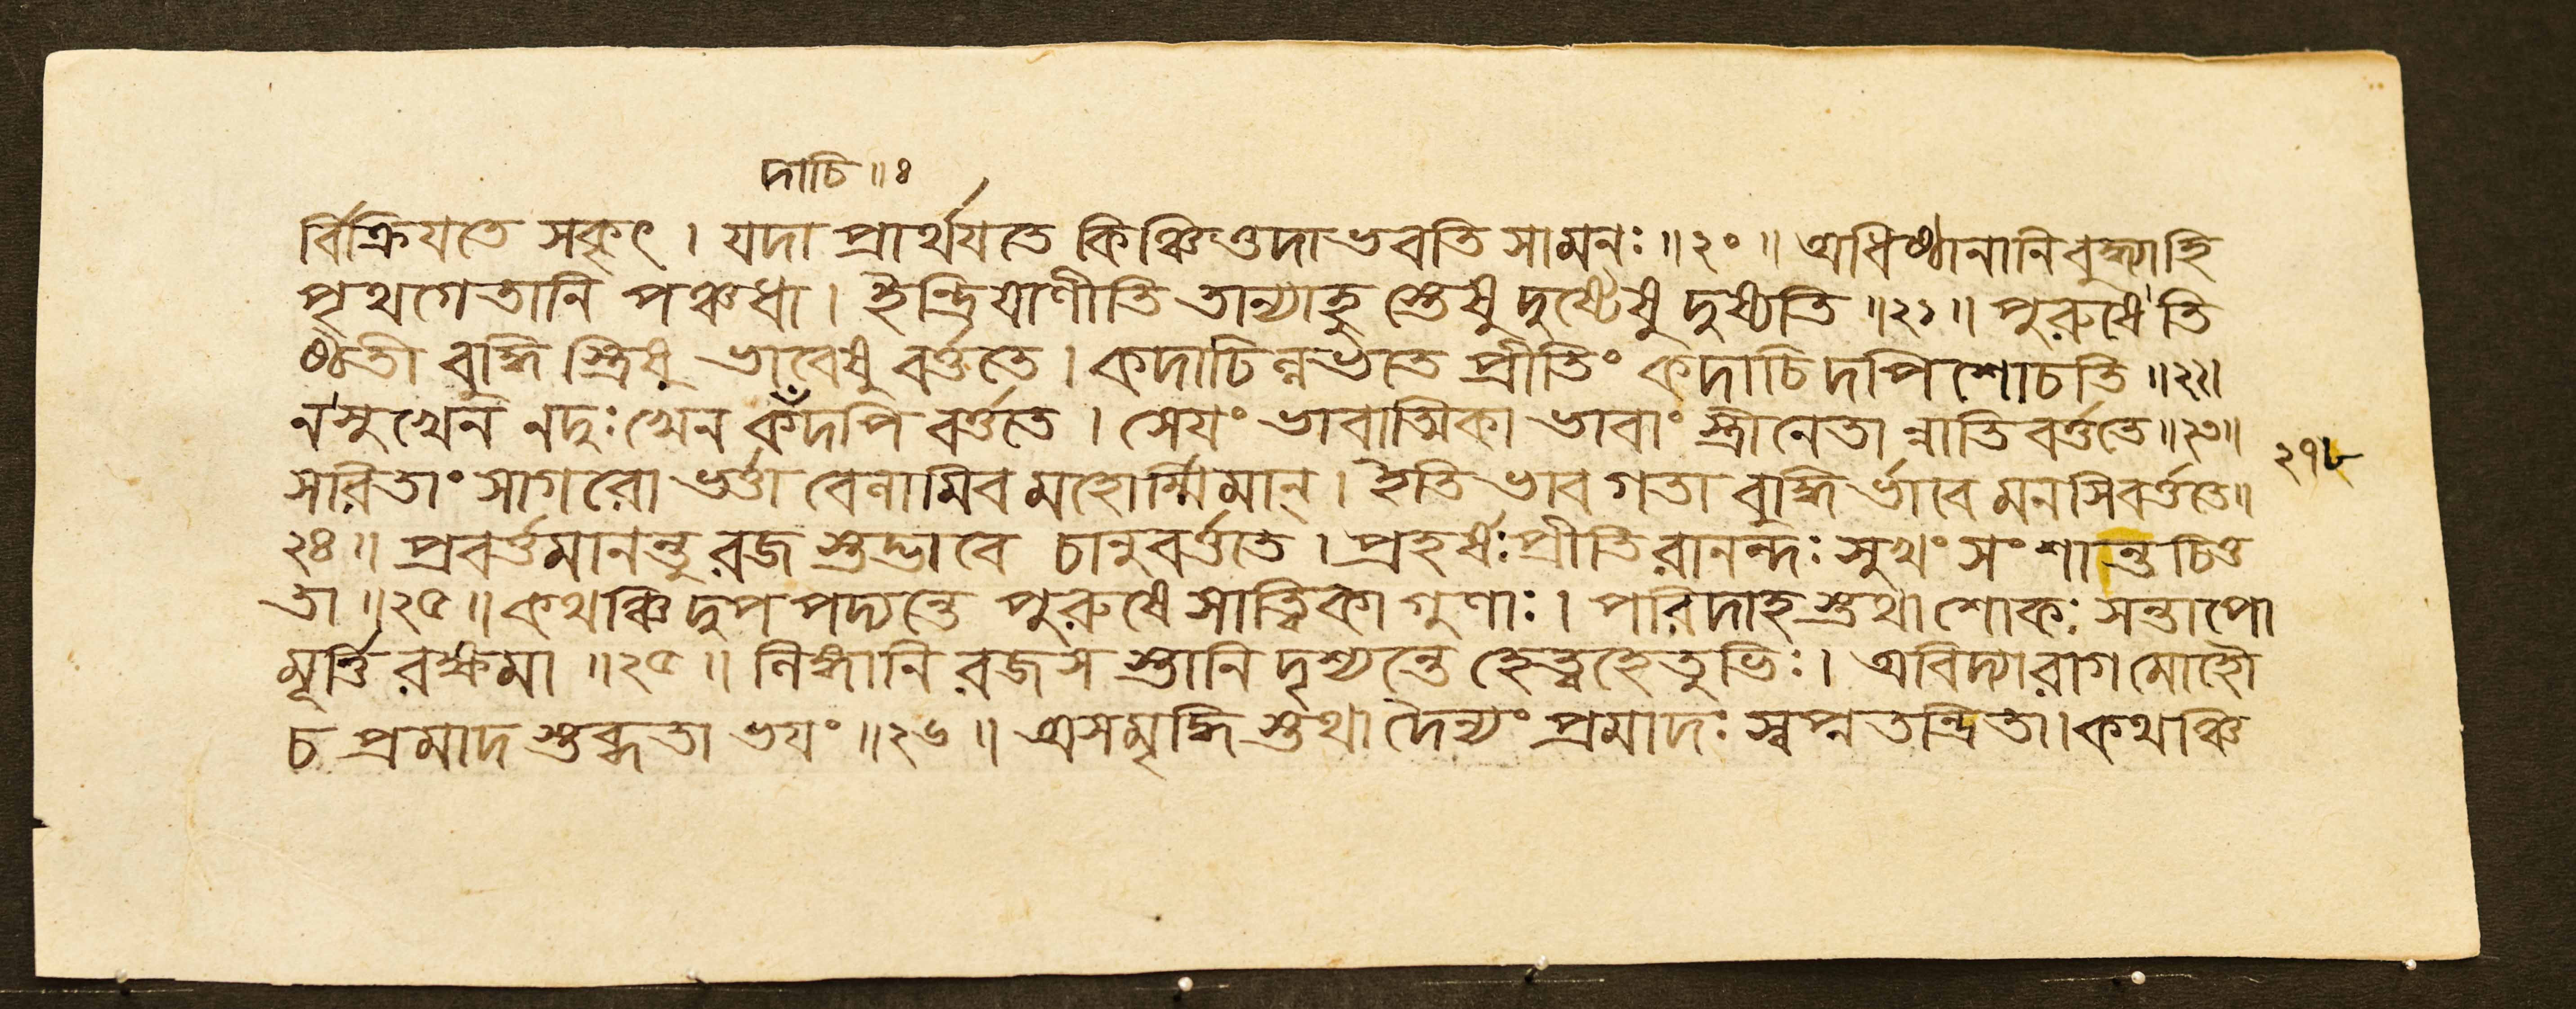 দাচি॥৪
র্বিক্রিযতে সকৃৎ । যদা প্রার্থযতে কিঞ্চিত্তদা ভবতি সা মনঃ ॥২০॥ অধিষ্ঠানানি বুদ্ধ্যা হি
পৃথগেতানি পঞ্চধা । ইন্দ্রিযাণীতি তান্যাহু স্তেষু দুষ্টেষু দুষ্যতি ॥২১॥ পুরুষে তি
ষ্ঠতী বুদ্ধি স্ত্রিষু ভাবেষু বর্ত্ততে । কদাচিল্লভতে প্রীতিং কদাচিদপি শোচতি ॥২২॥
ন সুখেন ন দুঃখেন কঁদপি বর্ত্ততে । সেযং ভাবাত্মিকা ভাবাং স্ত্রীনেতা ন্নাতিবর্ত্ততে ॥২৩॥
২৭৮
সরিতাং সাগরো ভর্ত্তা বেলামিব মহোর্ম্মিমান্ । ইতি ভাবগতা বুদ্ধি র্ভাবে মনসি বর্ত্ততে ॥
২৪॥ প্রবর্ত্তমানন্তু রজ স্তদ্ভাবে চানুবর্ত্ততে । প্রহর্ষঃ প্রীতিরানন্দঃ সুখং সংশান্তচিত্ত
তা ॥২৫॥ কথঞ্চিদুপপদ্যন্তে পুরুষে সাত্ত্বিকা গুণাঃ । পরিদাহ স্তথা শোকঃ সন্তাপো
মূর্ত্তি রক্ষমা ॥২৫॥ লিঙ্গানি রজস স্তানি দৃশ্যন্তে হেত্বহেতুভিঃ । অবিদ্যারাগমোহৌ
চ প্রমাদ স্তব্ধতা ভযং ॥২৬॥ অসমৃদ্ধি স্তথা দৈন্যং প্রমাদঃ স্বপ্নতন্দ্রিতা । কথঞ্চি